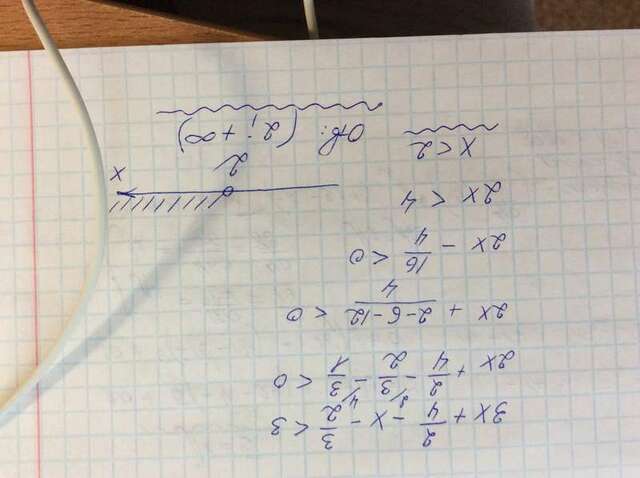 3x + 2/4 - x - 3/2 < 3
2x + 2/4 - ²/3/2 - ⁴/3/1 < 0
2x + (2-6-12)/4 < 0
2x - 16/4 < 0
2x < 4
x < 2
2 x
Отв: (2; +∞)